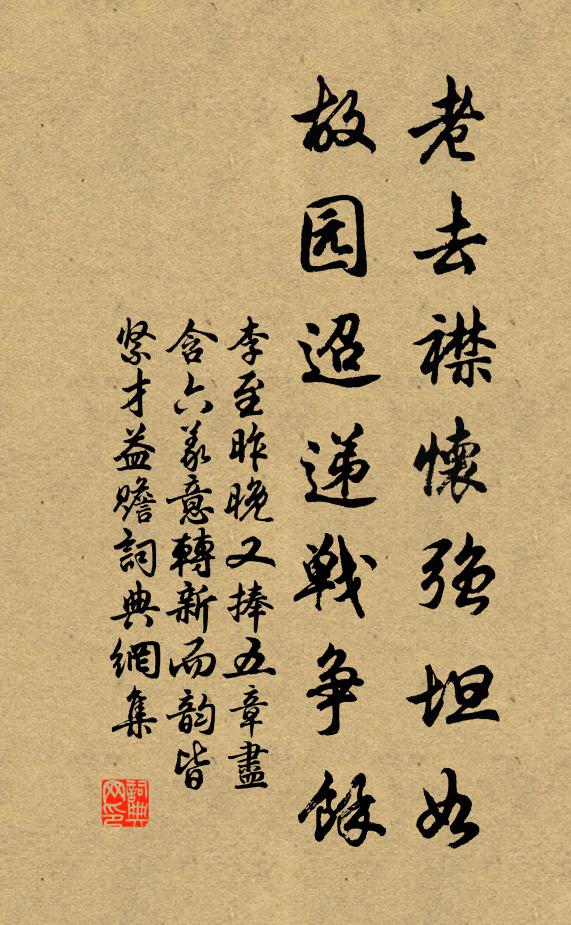 老去襟懷強坦如
故园迢递戦争餘
李至昨晚又捧五章盡
含六義意轉新而韵皆
緊才益贍詞典網集
詞典网印